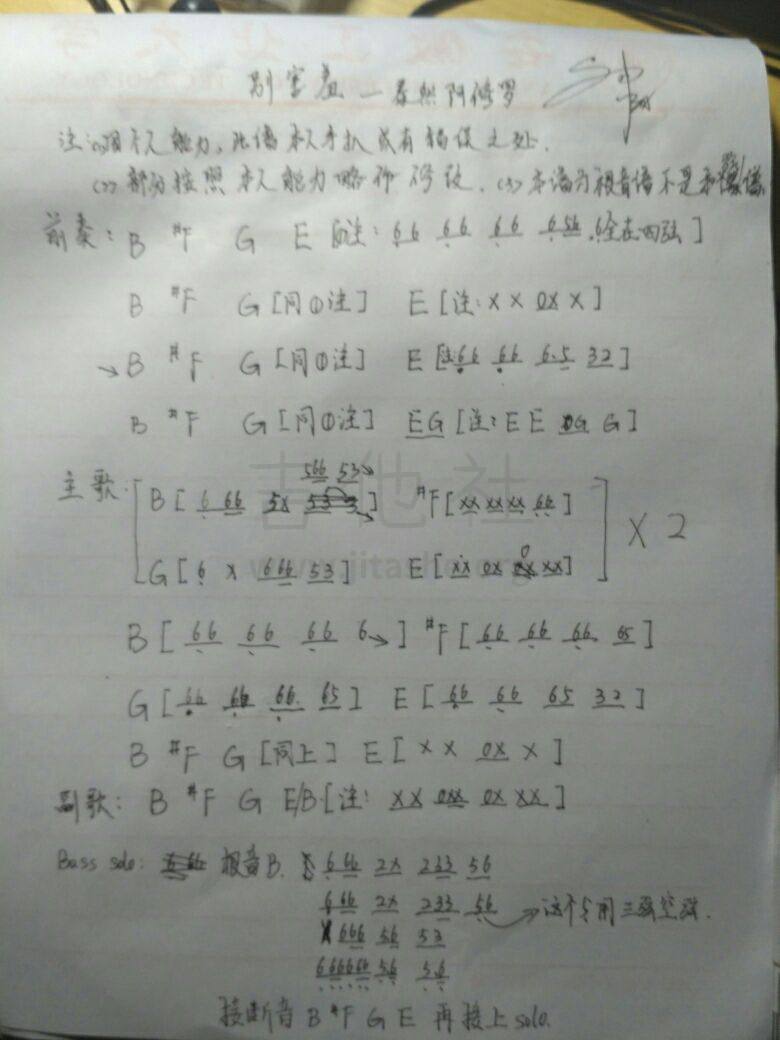 别害羞 — 春秋阿修罗
注:(1)因本人能力,此谱本人手扒或有错误之处.
(2)部分按照本人能力略作修改. (3)本谱为根音谱不是和弦谱.
前奏: B #F G E [①注: 66 66 66 6 56 .6全在四弦]
B #F G [同①注] E [注: X X 0X X]
→ B #F G [同①注] E [注: 66 66 6.5 32]
B #F G [同①注] EG [注: E E 0G G]
566 53
主歌: B [ 6 66 5X ] #F [XX XX XX 66]
X 2
G [ 6 X 666 53 ] E [XX 0X XX]
B [ 66 66 66 6 → ] #F [ 66 66 66. 65 ]
G [ 66 66 66. 65 ] E [ 66 66 65 32 ]
B #F G [同上] E [ X X 0X X ]
副歌: B #F G E/B [注: XX 0XX 0X XX ]
Bass solo: 根音B. 6 66 2X 233 56
6 66 2X 233 56 → 这个5用三弦空弦.
X 666 56 53
666666 56 56
接断音 B #F G E 再接上solo.
吉他社
www.jitashe.org